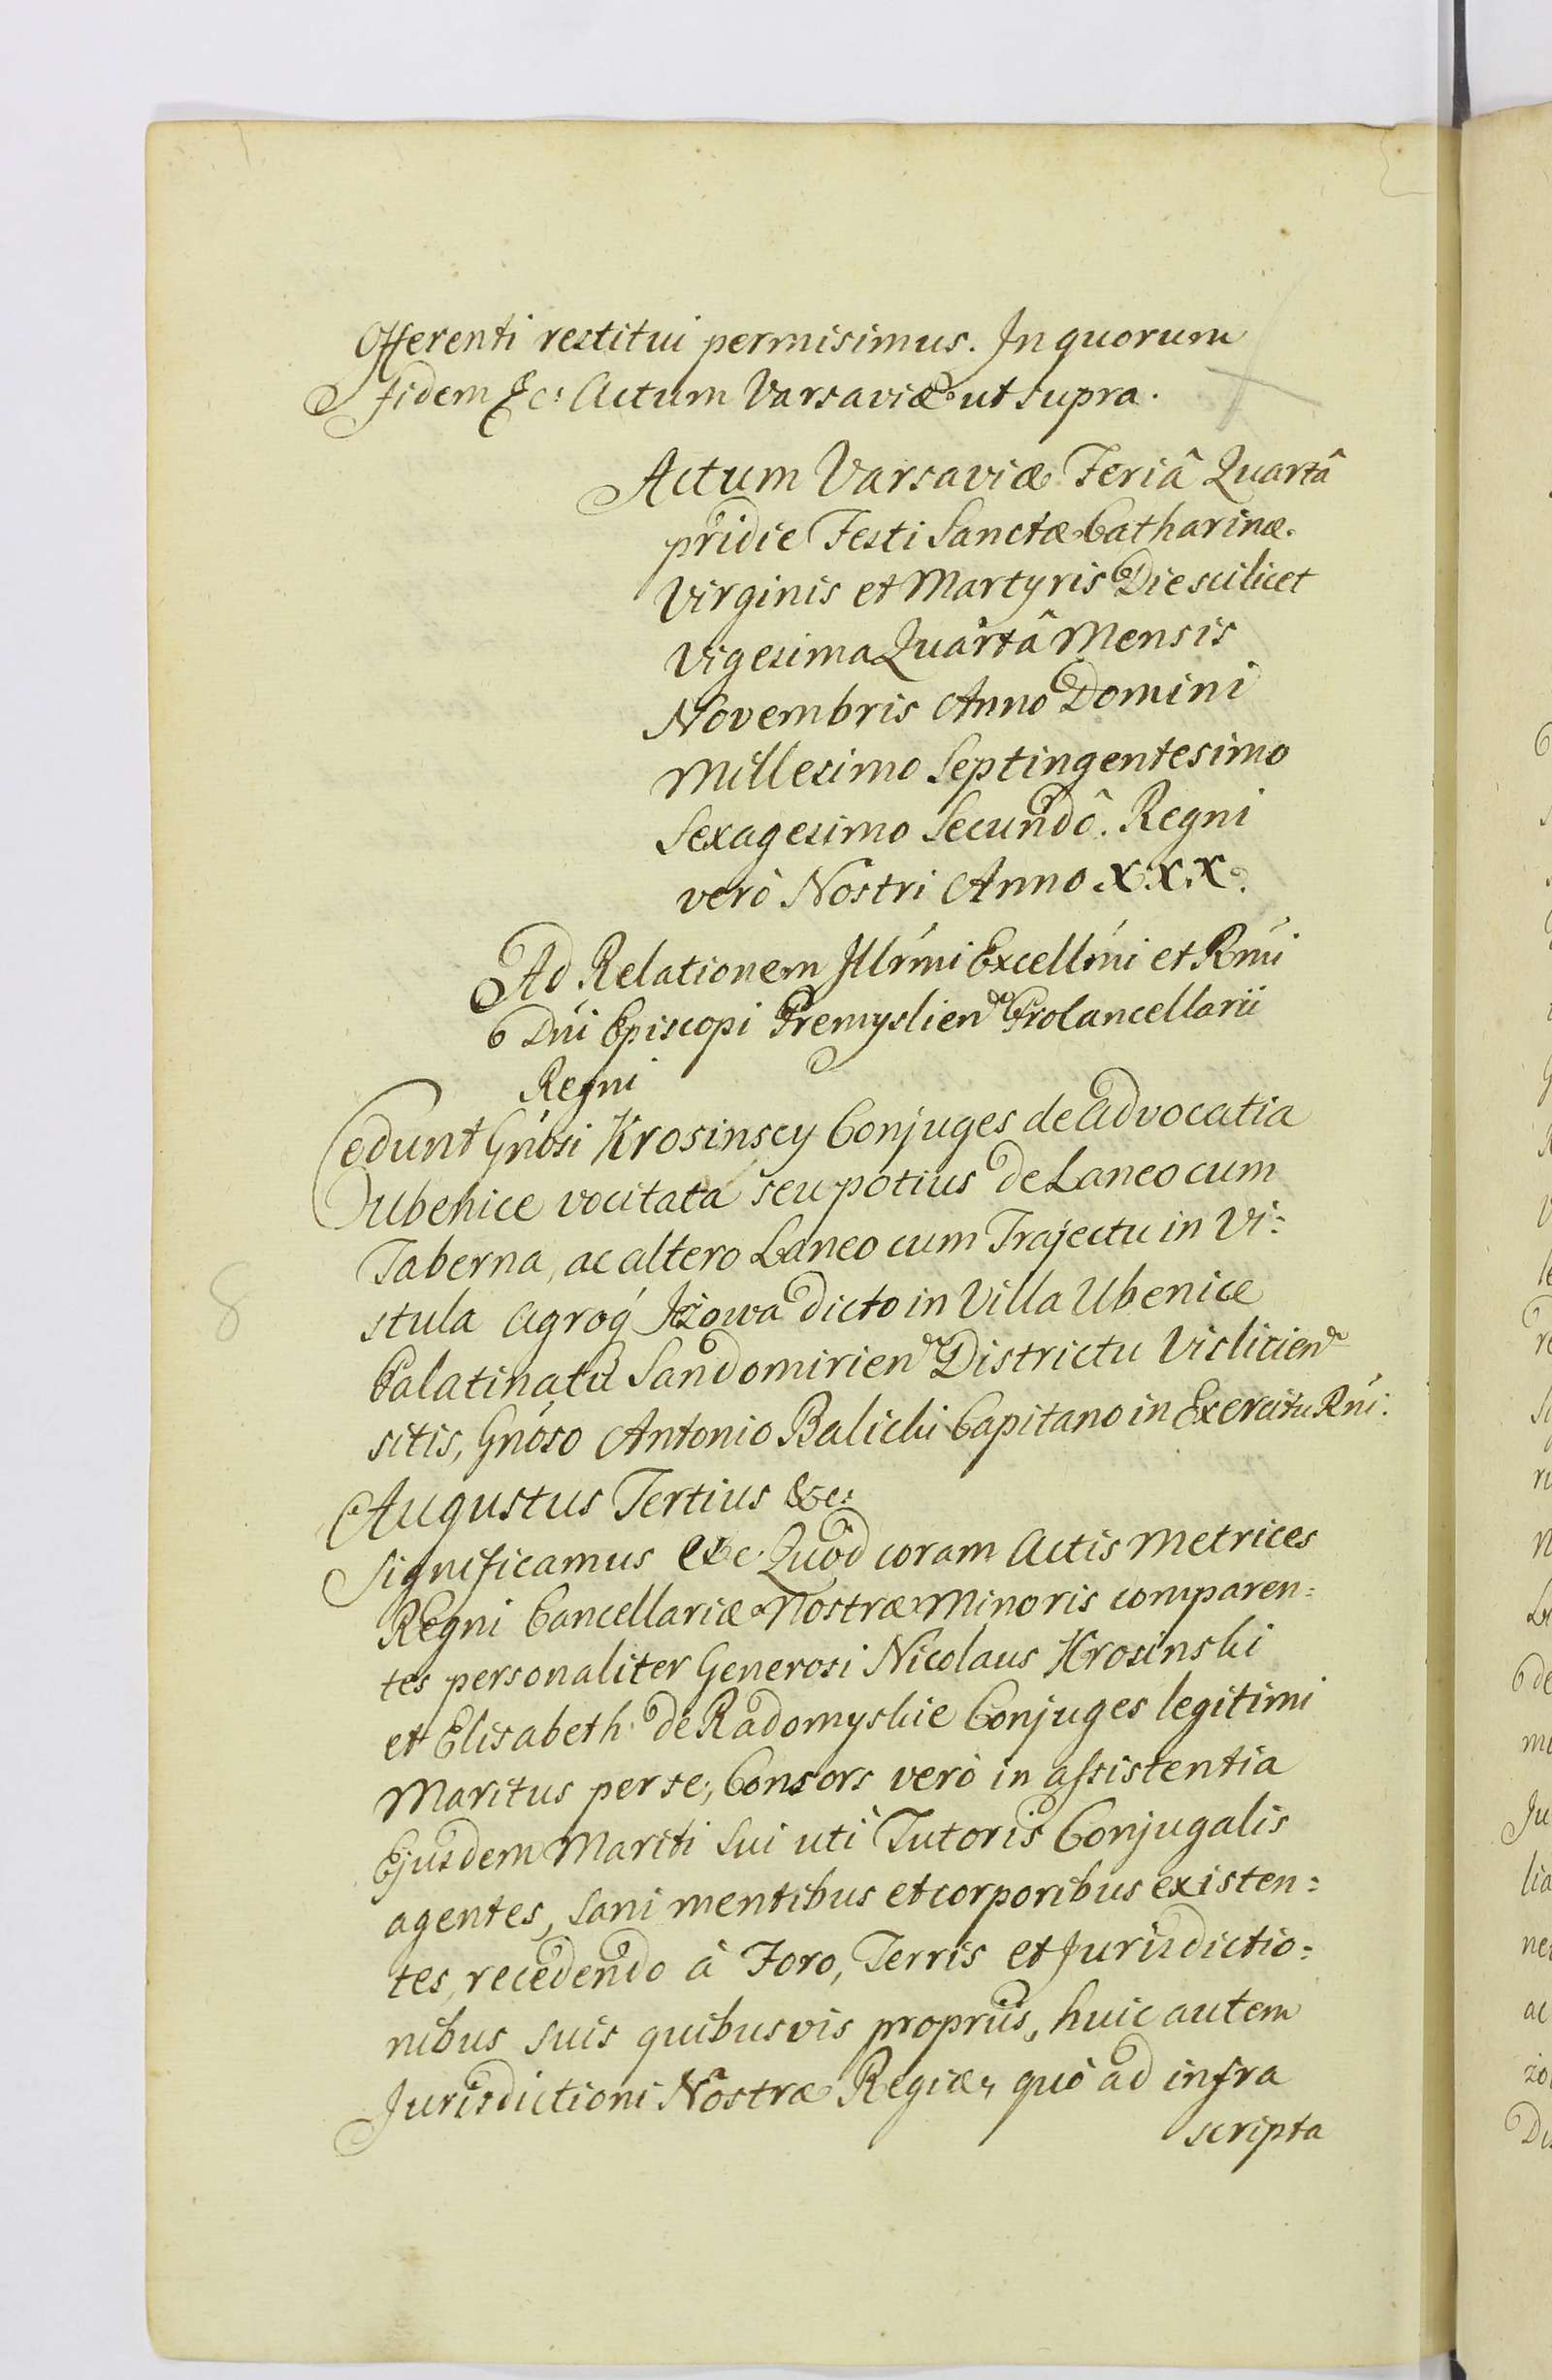 Offerenti restitui permisimus. In quorum
fidem &c: Actum Varsaviæ ut supra.
Actum Varsaviæ Feriâ Quartâ
pridie Festi Sanctæ Catharinæ
Virginis et Martyris Die scilicet
Vigesima Quartâ Mensis
Novembris Anno Domini
Millesimo Septingentesimo
Sexagesimo Secundô. Regni
verò Nostri Anno XXX.
Ad Relationem Illrmi Excellmi et Rmi
Dni Episcopi Premyslien Procancellarii
Regni
Cedunt Gnosi Krosinscy Conjuges de Advocatia
Ubenice vocitata seu potius de Laneo cum
Taberna, ac altero Laneo cum Trajectu in Vi:
stula Agroq́ Izowa dicto in Villa Ubenice
Palatinatu Sandomirien Districtu Vislicien
sitis, Gnoso Antonio Balicki Capitano in Exercitu Rni:
Augustus Tertius &c:
8
Significamus &c. Quod coram Actis Metrices
Regni Cancellariæ Nostræ Minoris comparen:
tes personaliter Generosi Nicolaus Krosinski
et Elisabeth de Radomyskie Conjuges legitimi
Maritus per se, Consors verò in assistentia
Ejusdem Mariti Sui uti Tutoris Conjugalis
agentes, sani mentibus et corporibus existen:
tes, recedendo à Foro, Terris et Jurisdictio:
nibus suis quibusvis propriis, huic autem
Jurisdictioni Nostræ Regiæ, quò ad infra
scripta